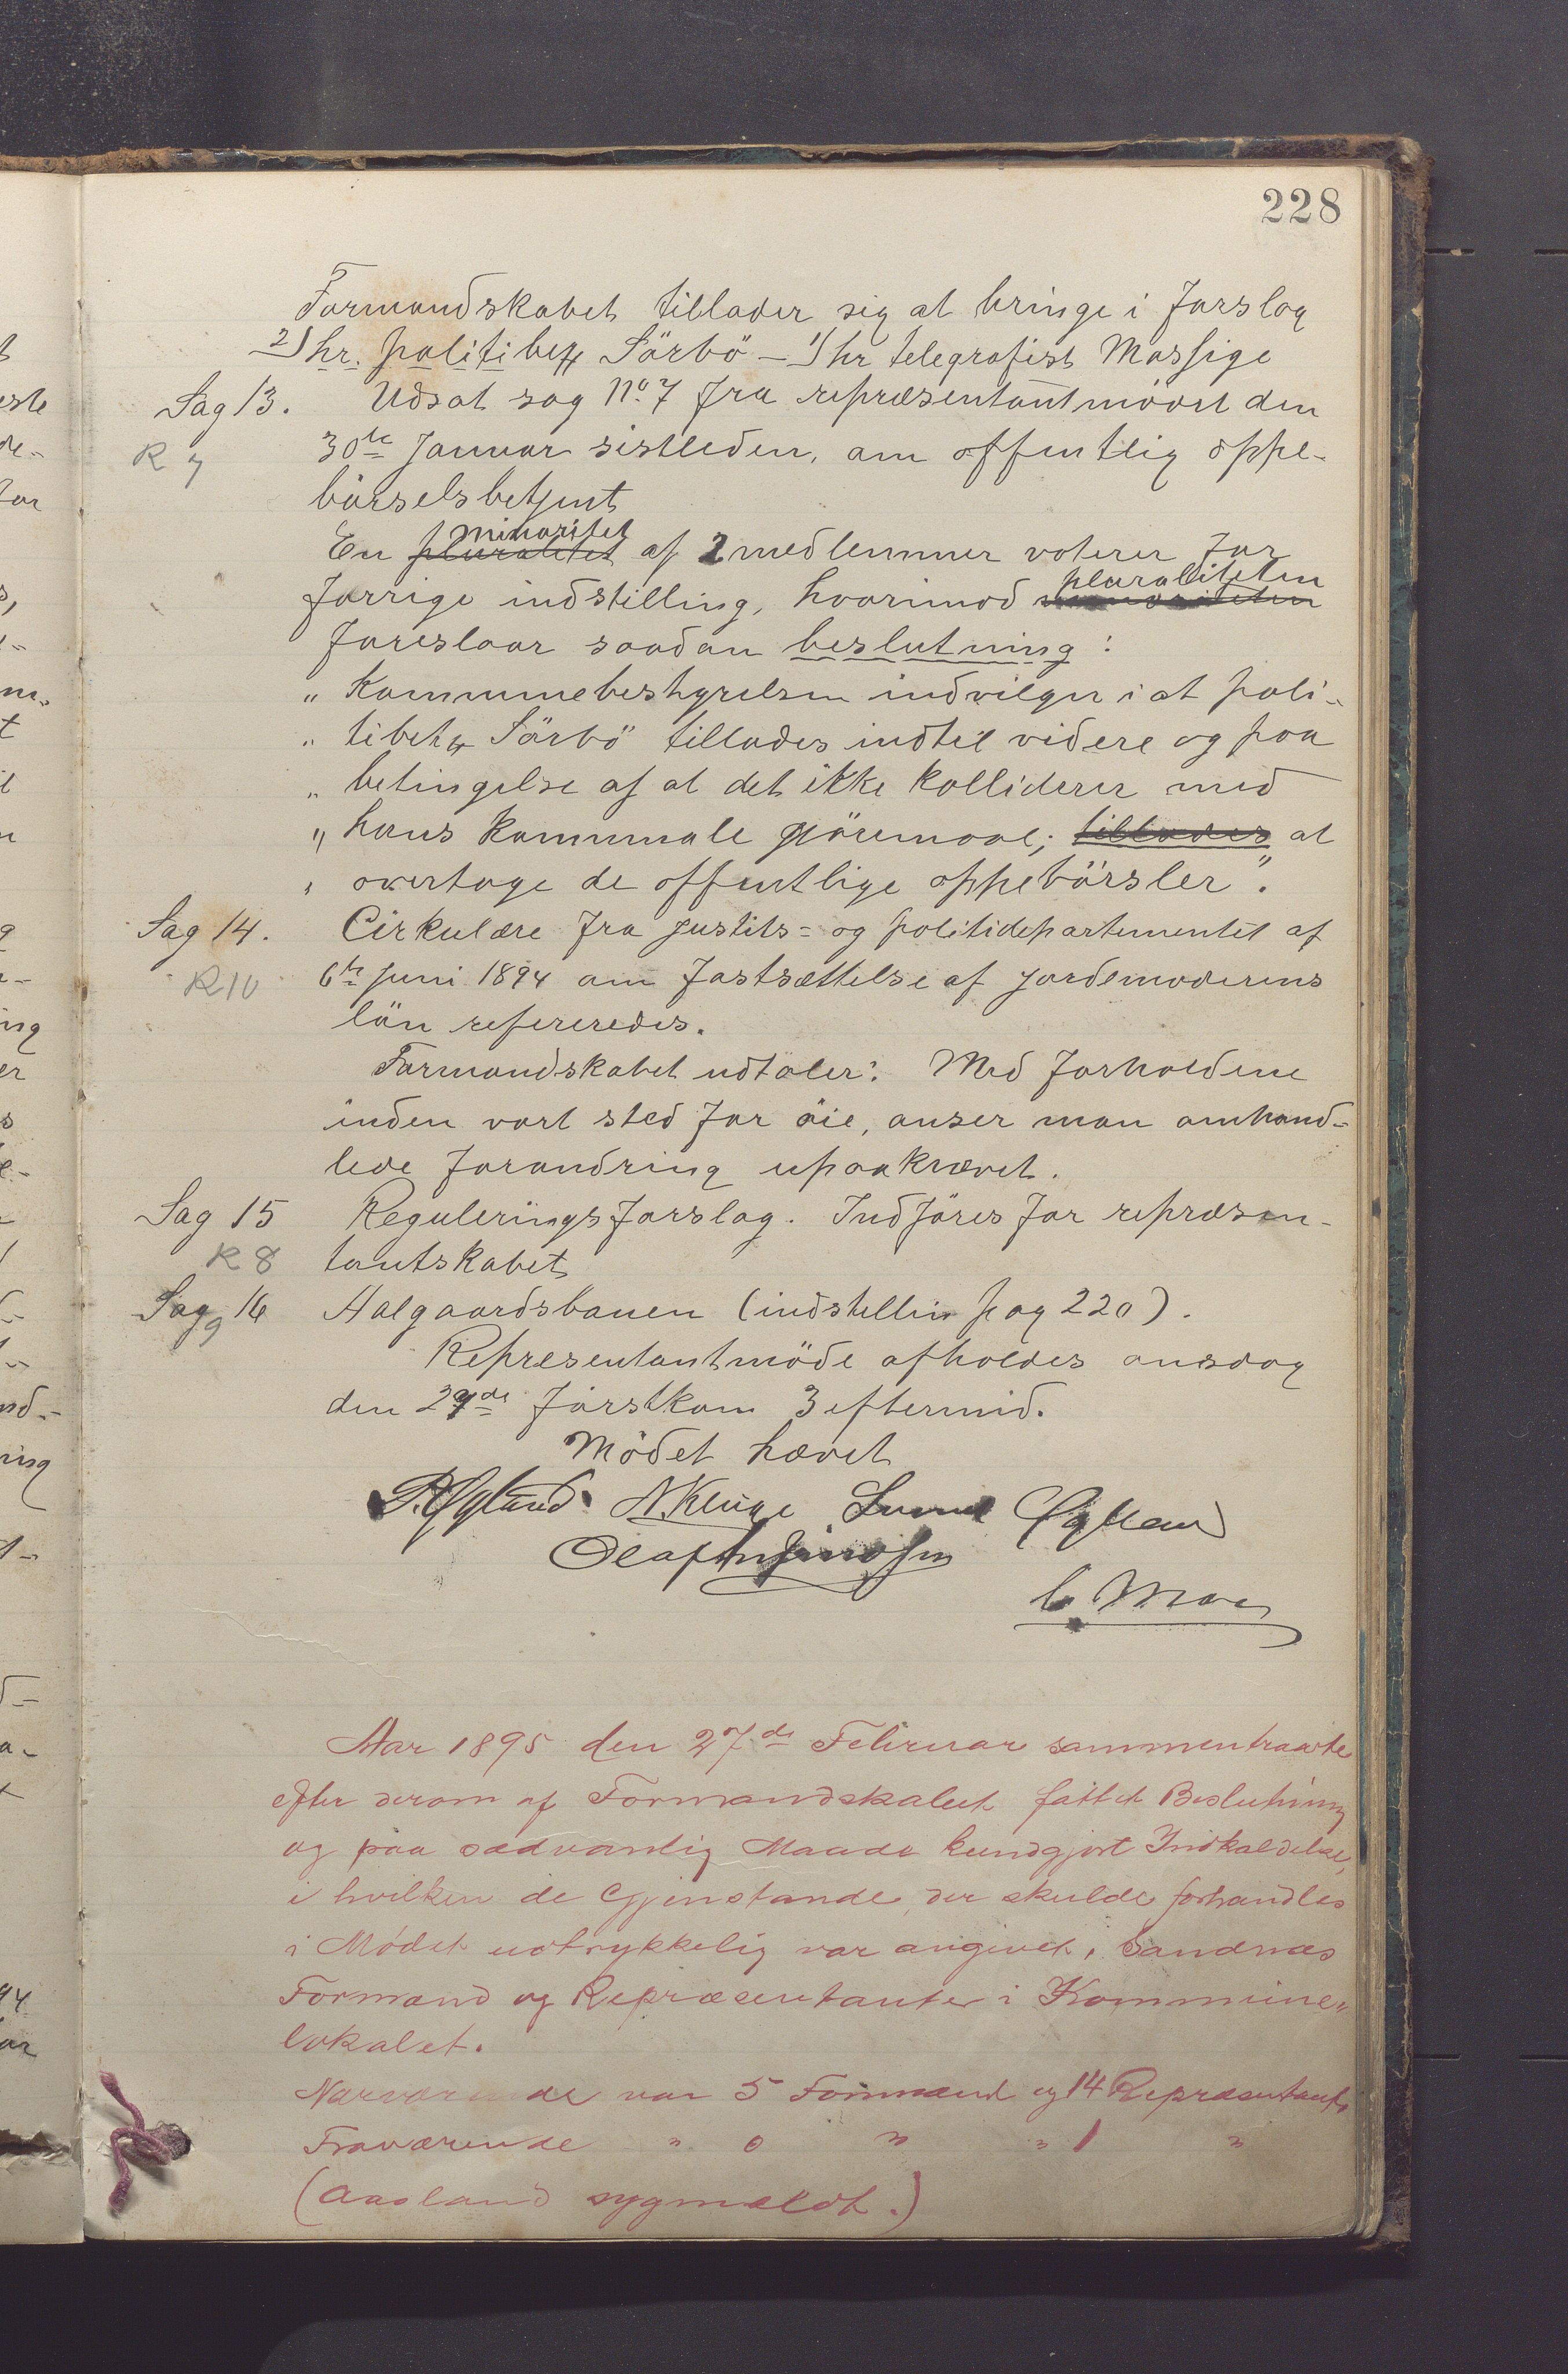 228
Formandskabet tillader sig at bringe i forslag
2) hr. politibetj Sörbö – 1) hr telegrafist Massige
Sag 13. Udsat sag No. 7 fra repræsentantmödet den
R 7 30te Januar sistleden, om offentlig oppe-
börselsbetjent
minoritet
En pluralitet af 2 medlemmer voterer for
pluraliteten
forrige indstilling, hvorimod minoriteten
foreslaar saadan beslutning:
„ Kommunebestyrelsen indvilger i at poli-
„ tibetj Sörbö tillades indtil videre og paa
„ betingelse af at det ikke kolliderer med
„ hans kommunale gjöremaal; tillades at
„ overtage de offentlige oppebörsler".
Sag 14. Cirkulære fra justits- og politidepartementet af
R 10 6te juni 1894 om fastsættelse af jordemoderens
lön refereredes.
Formandskabet udtaler: Med forholdene
inden vort sted for öie, anser man omhand-
lede forandring upaakrævet.
Sag 15 Reguleringsforslag. Indföres for repræsen-
R 8 tantskabet
Sag 16 Aalgaardsbanen (indstillin pag 220).
9
Representantmöde afholdes onsdag
den 27de förstkom 3 eftermid.
Mödet hævet
Aar 1895 den 27de Februar sammentraadte
efter derom af Formandskabet fattet Beslutning
og paa sædvanlig Maade kundgjort Indkaldelse,
i hvilken de Gjenstande, der skulde forhandles
i Mødet udtrykkelig var angivet, Sandnæs
Formænd og Repræsentanter i Kommune-
lokalet.
Nærværende var 5 Formænd og 14 Repræsentant.
Fraværende " 0 " " 1 "
(Aasland sygmeldt.)